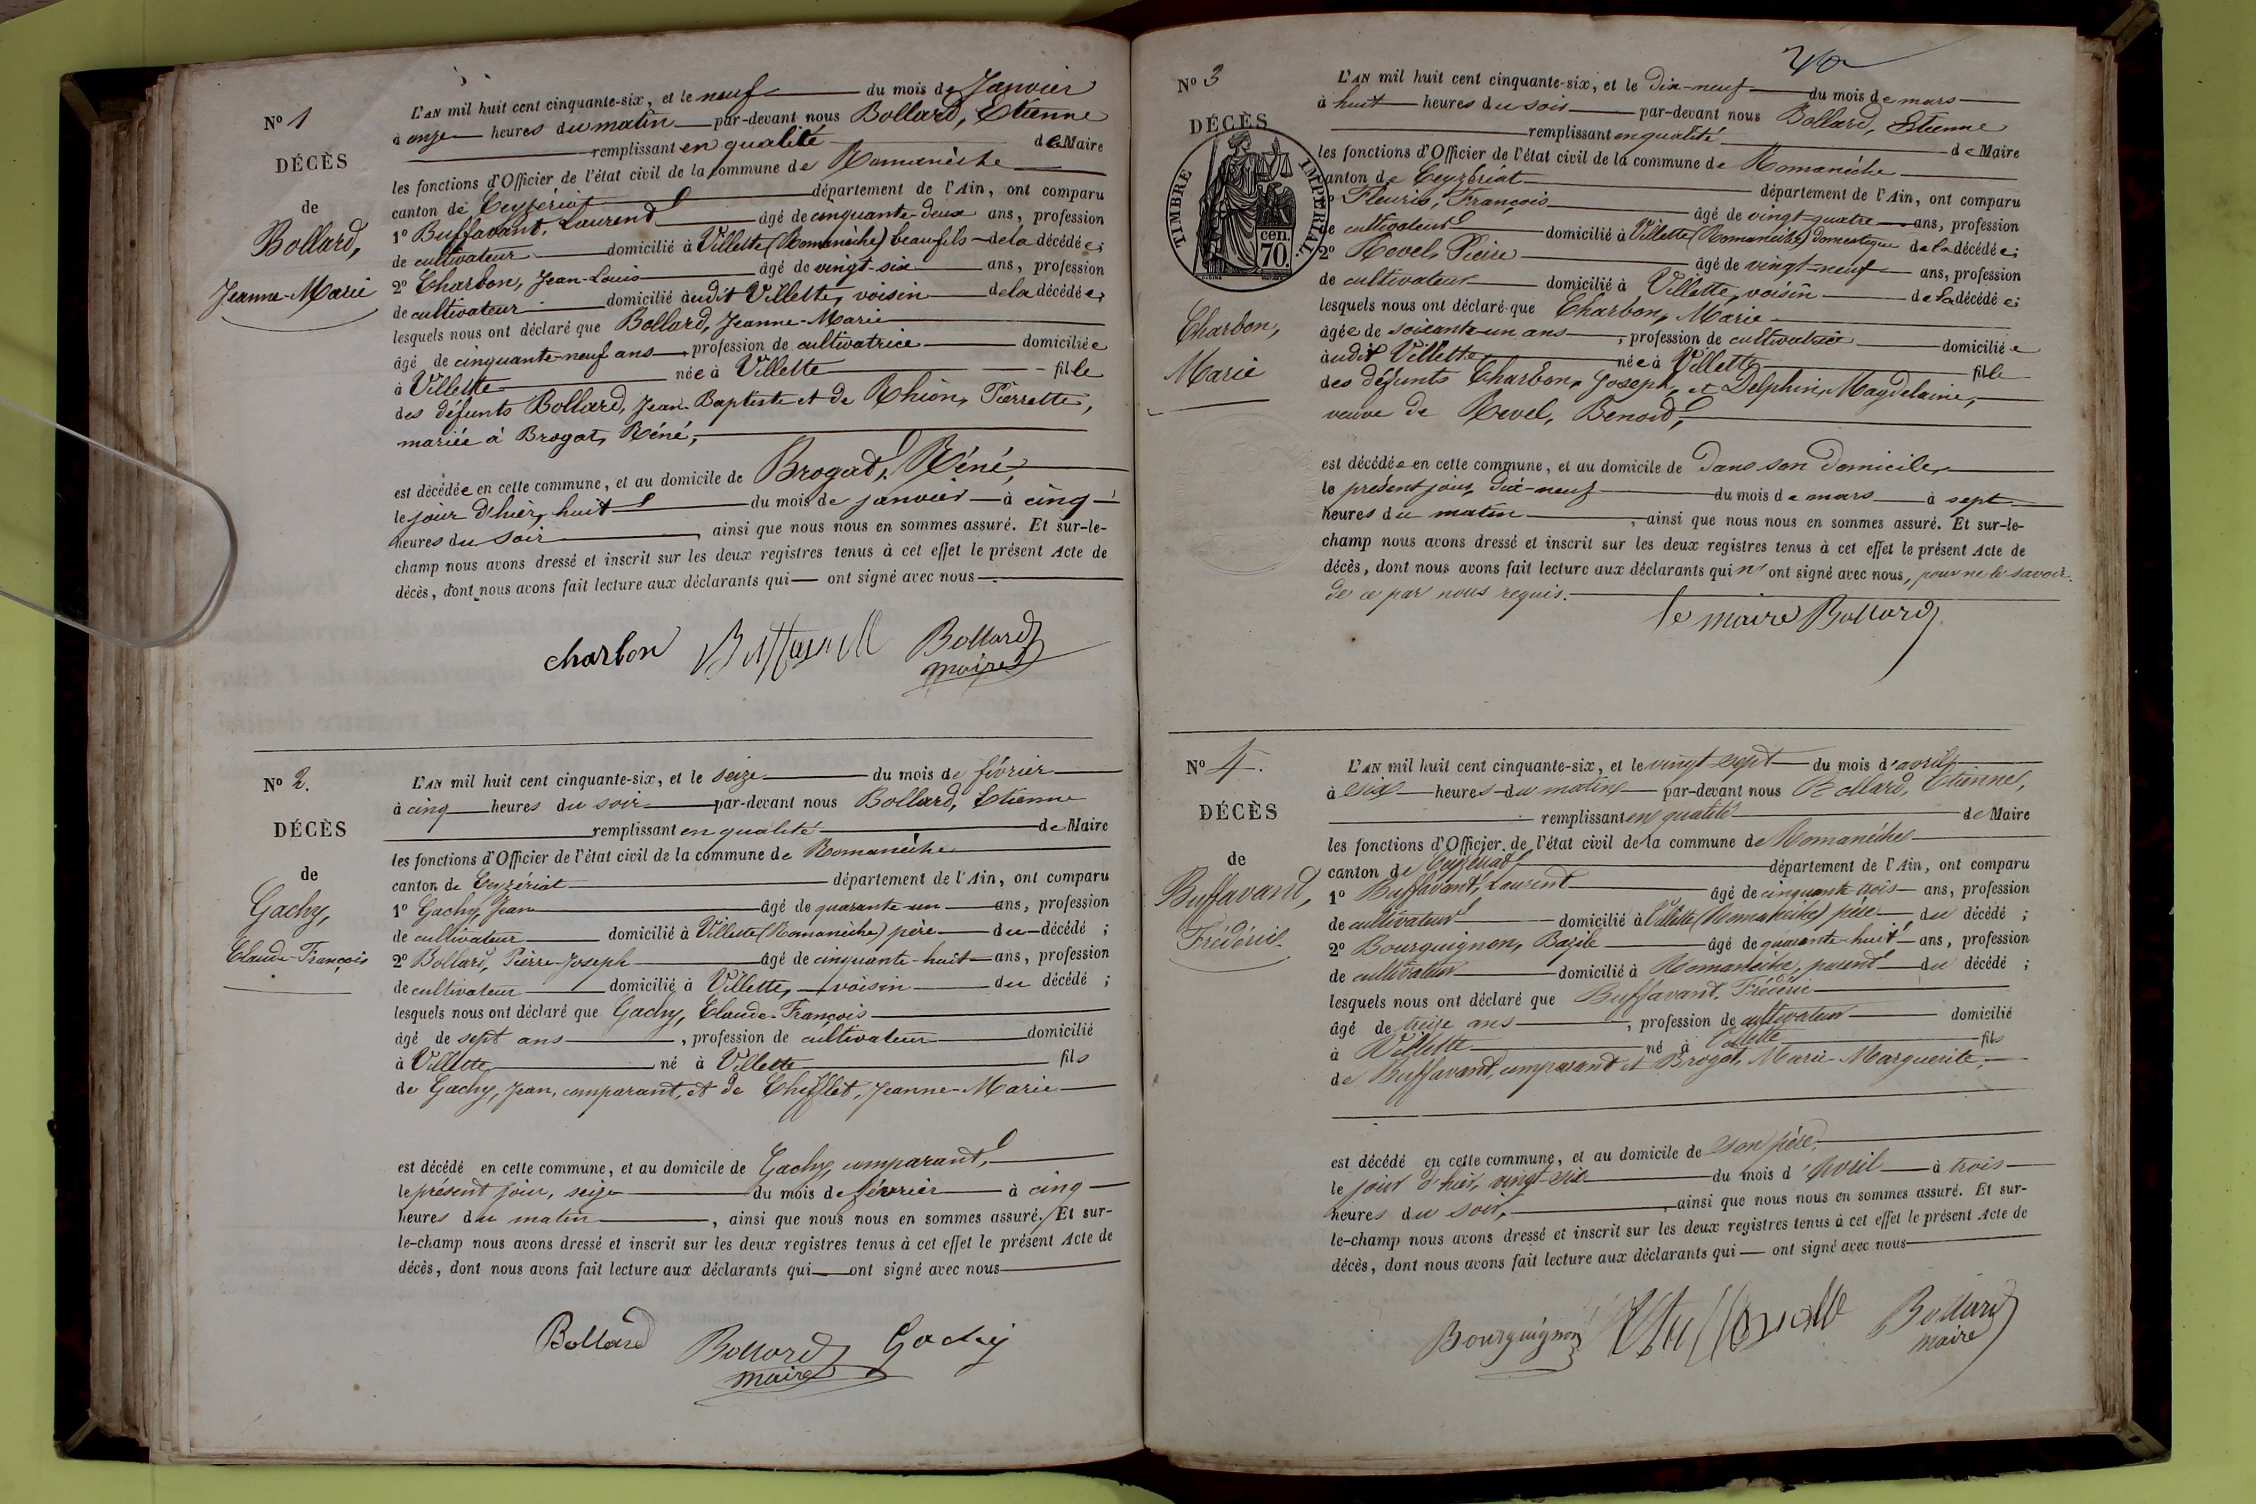 No 1
DÉCÈS
de
Bollard,
Jeanne-Marie
L'AN mil huit cent cinquante-six, et le neuf du mois de Janvier
à onze heures du matin par-devant nous Bollard, Etienne
remplissant en qualité de Maire
les fonctions d'Officier de l'état civil de la commune de Romanèche
canton de Ceyzériat département de l'Ain, ont comparu
1o Buffavant, Laurend âgé de cinquante-deux ans, profession
de cultivateur domicilié à Villette (Romanèche) beaufils de la décédée;
2o Charbon, Jean-Louis âgé de vingt-six ans, profession
de cultivateur domicilié àudit Villette, voisin de la décédée;
lesquels nous ont déclaré que Bollard, Jeanne-Marie
âgé de cinquante-neuf ans, profession de cultivatrice domiciliée
à Villette née à Villette fille
des défunts Bollard, Jean-Baptiste et de Rhion, Pierrette,
mariée à Brogat, Réné,
est décédée en cette commune, et au domicile de Brogat, Réné,
le jour d'hier, huit du mois de janvier à cinq
heures du soir, ainsi que nous nous en sommes assuré. Et sur-le-
champ nous avons dressé et inscrit sur les deux registres tenus à cet effet le présent Acte de
décès, dont nous avons fait lecture aux déclarants qui ont signé avec nous
charbon Bollard
maire
No 2.
DÉCÈS
de
Gachy,
Claude-François
L'AN mil huit cent cinquante-six, et le seize du mois de février
à cinq heures du soir par-devant nous Bollard, Etienne
remplissant en qualité de Maire
les fonctions d'Officier de l'état civil de la commune de Romanèche
canton de Ceyzériat département de l'Ain, ont comparu
1o Gachy, Jean âgé de quarante-un ans, profession
de cultivateur domicilié à Villette (Romanèche) père du décédé;
2o Bollard, Pierre-Joseph âgé de cinquante-huit ans, profession
de cultivateur domicilié à Villette, voisin du décédé;
lesquels nous ont déclaré que Gachy, Claude-François
âgé de sept ans, profession de cultivateur domicilié
à Villette né à Villette fils
de Gachy, Jean, comparant, et de Chifflet, Jeanne-Marie
est décédé en cette commune, et au domicile de Gachy, comparant,
le présent jour, seize du mois de février à cinq
heures du matin, ainsi que nous nous en sommes assuré. Et sur-
le-champ nous avons dressé et inscrit sur les deux registres tenus à cet effet le présent Acte de
décès, dont nous avons fait lecture aux déclarants qui ont signé avec nous
Bollard Bollard Gachy
maire
No 3
DÉCÈS
TIMBRE IMPÉRIAL
cen.
70.
Charbon,
Marie
L'AN mil huit cent cinquante-six, et le dix-neuf du mois de mars
à huit heures du soir par-devant nous Bollard, Etienne
remplissant en qualité de Maire
les fonctions d'Officier de l'état civil de la commune de Romanèche
canton de Ceyzériat département de l'Ain, ont comparu
Fleuris, François âgé de vingt-quatre ans, profession
de cultivateur domicilié à Villette (Romanèche) domestique de la décédée;
2o Revel, Pierre âgé de vingt-neuf ans, profession
de cultivateur domicilié à Villette, voisin de la décédée;
lesquels nous ont déclaré que Charbon, Marie
âgée de soixante-un ans, profession de cultivatrice domiciliée
àudit Villette née à Villette fille
des défunts Charbon, Joseph, et Delphin, Magdelaine,
veuve de Revel, Benoid,
est décédée en cette commune, et au domicile de dans son domicile,
le présent jour, dix-neuf du mois de mars à sept
heures du matin, ainsi que nous nous en sommes assuré. Et sur-le-
champ nous avons dressé et inscrit sur les deux registres tenus à cet effet le présent Acte de
décès, dont nous avons fait lecture aux déclarants qui n'ont signé avec nous, pour ne le savoir
de ce par nous requis.
le maire Bollard
No 4.
DÉCÈS
de
Buffavand,
Frédéric
L'AN mil huit cent cinquante-six, et le vingt-sept du mois d'avril
à six heures du matin par-devant nous Bollard, Etienne,
remplissant en qualité de Maire
les fonctions d'Officier de l'état civil de la commune de Romanèche
canton de Ceyzériat département de l'Ain, ont comparu
1o Buffavant, Laurent âgé de cinquante-trois ans, profession
de cultivateur domicilié à Villette (Romanèche) père du décédé;
2o Bourguignon, Bazile âgé de quarante-huit ans, profession
de cultivateur domicilié à Romanèche, parent du décédé;
lesquels nous ont déclaré que Buffavant, Frédéric
âgé de treize ans, profession de cultivateur domicilié
à Villette né à Villette fils
de Buffavant, comparant et Brogat, Marie-Marguerite,
est décédé en cette commune, et au domicile de son père,
le jour d'hier, vingt-six du mois d'avril à trois
heures du soir, ainsi que nous nous en sommes assuré. Et sur-
le-champ nous avons dressé et inscrit sur les deux registres tenus à cet effet le présent Acte de
décès, dont nous avons fait lecture aux déclarants qui ont signé avec nous
Bourguignon Bollard
maire